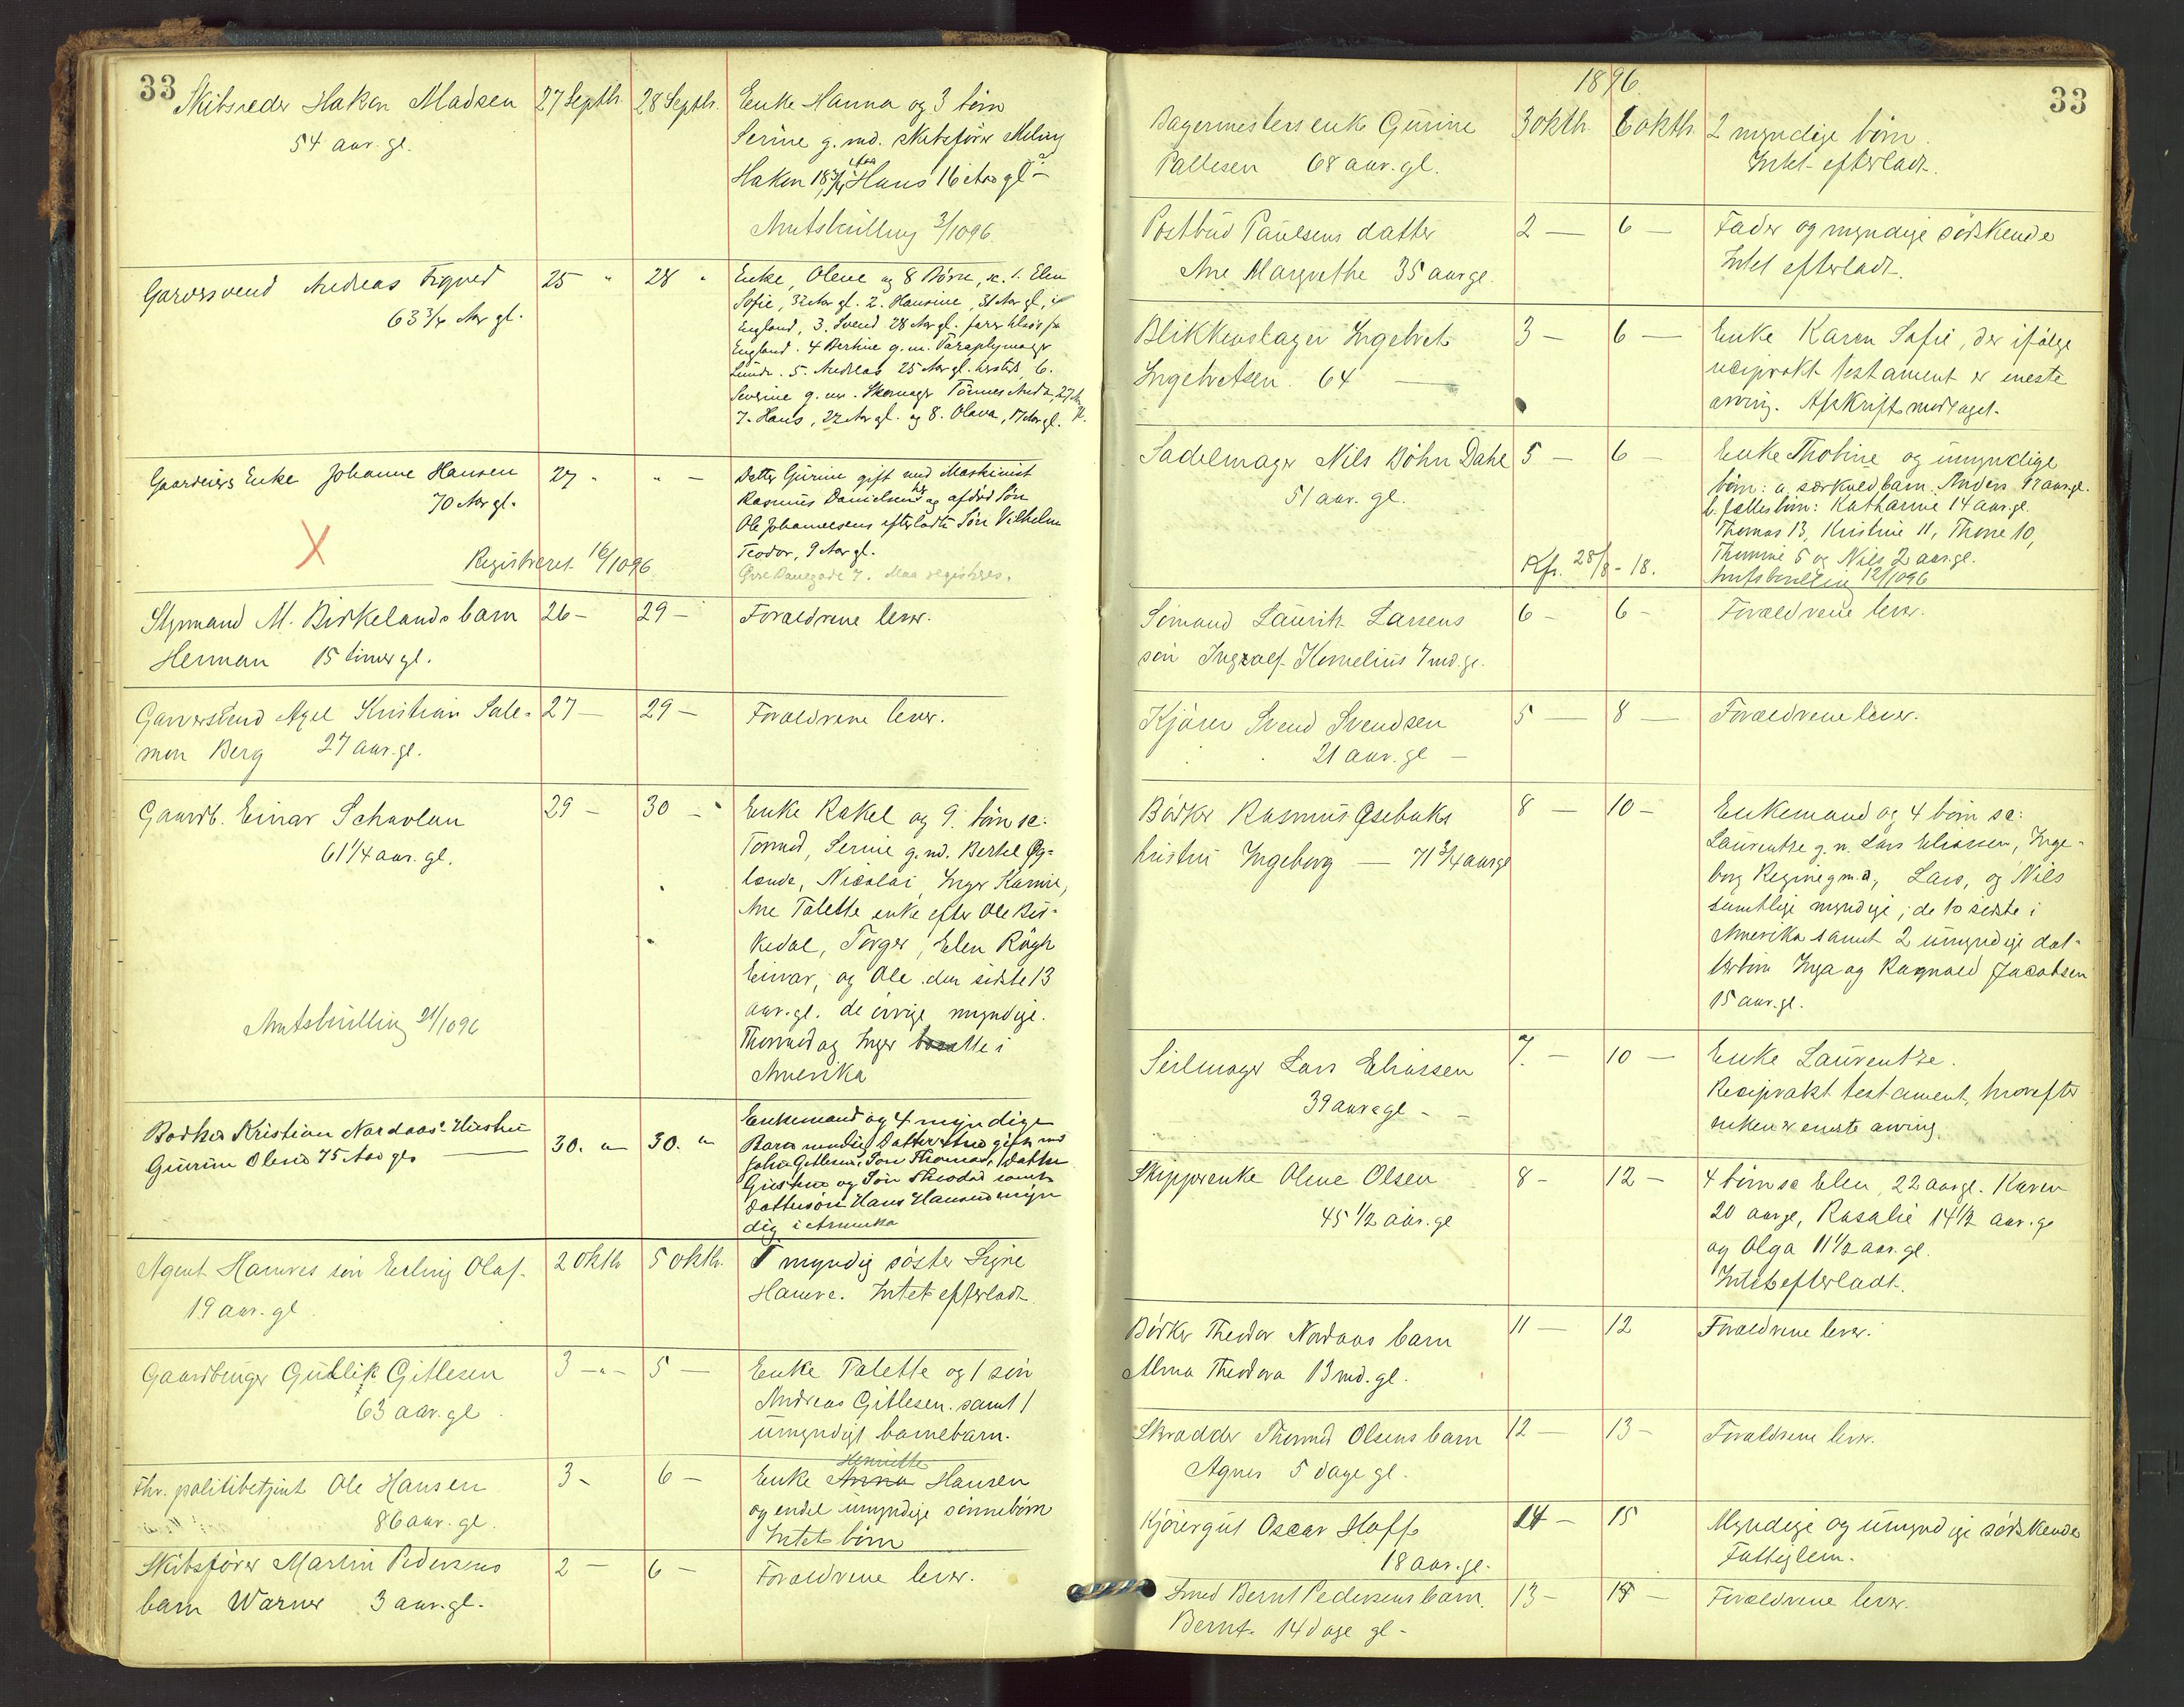 33
Skibsreder Haken Madsen 27 Septbr. 28 Septbr. Enke Hanna og 3 børn
54 aar. gl.
Serine g. md. skibsfører Meling
Haken 18 3/4 Hans 16 Aar gl
Amtskilling 3/10 96
Garversvend Andreas Figved 25 " 28 " Enke, Olene og 8 Børn, sc. 1. Elen
63 3/4 Aar gl.
Sofie, 32 Aar gl. 2. Hansine, 31 Aar gl, i
England, 3. Svend 28 Aar gl. farer tilsjøs fra
England. 4 Bertine g. m. Paraplymager
Lunde. 5. Andreas 25 Aar gl. 6.
Severine g. m. Skomager Tønnes 27 Aar gl.
7. Hans, 22 Aar gl. og 8. Olava, 17 Aar gl.
Gaardeiers Enke Johanne Hansen 27 " " - Datter Gurine gift med Maskinist
70 Aar gl.
Rasmus Danielsen og afdød Søn
Ole Johannesens efterladte Søn Vilhelm
Teodor, 9 Aar gl.
X
Registreret 16/10 96
Øvre Banegade 7. Maa registreres.
Styrmand M. Birkelands barn 26 - 29 - Forældrene lever.
Herman 15 timer gl.
Garversvend Axel Kristian Salo- 27 - 29 - Forældrene lever.
mon Berg 27 aar. gl.
Gaardb. Einar Schavlan 29 - 30 - Enke Rakel og 9 børn sc:
61 1/4 aar. gl.
Tormod, Serine g. m. Bertel Øg-
lænde, Nicolai, Inger Karine,
Ane Talette enke efter Ole Bir-
kedal, Torger, Elen Rägh
Einar, og Ole den sidste 13
aar. gl. de øvrige myndige.
Thormod og Inger bosatte i
Amerika
Amtskilling 21/10 96
Bødker Kristian Nordaas' Hustru 30. " 30. " Enkemand og 4 myndige
Gurine Olene 75 Aar gl.
Børn nemlig Datter gift med
John Gitlesen, Søn Thomas, Datter
Gustine og Søn Theodor samt
Dattersøn Hans Hansen myn
dig i Amerika
Agent Hamres søn Erling Olaf. 2 Oktbr 5 Oktbr. 1 myndig søster Signe
19 aar. gl.
Hamre. Intet efterladt.
Gaardbruger Gullik Gitlesen 3 - " - 5 - Enke Talette og 1 søn
63 aar. gl.
Andreas Gitlesen. samt 1
umyndigt barnebarn.
Fhv. politibetjent Ole Hansen 3 - 6 - Enke Anna Henriette Hansen
86 aar. gl.
og endel umyndige sønnebørn
Intet børn
Skibsfører Martin Pedersens 2 - 6 - Forældrene lever.
barn Warner 3 aar. gl.
1896.
33
Bagermesters enke Gurine 3 Oktbr. 6 Oktbr. 2 myndige børn.
Pallesen 68 aar. gl. Intet efterladt.
Postbud Paulsens datter 2 - 6 - Fader og myndige sødskende
Ane Margrethe 35 aar gl. Intet efterladt.
Blikkenslager Ingebret 3 - 6 - Enke Karen Sofie, der ifølge
Ingebretsen. 64 - reciprokt testament er eneste
arving. Afskrift modtaget.
Sadelmager Nils Bøhn Dahl 5 - 6 - Enke Thobine og umyndige
51 aar. gl.
børn: a, særkuldbarn: Anders 17 aar. gl.
b. fællesbørn: Katharine 14 aar. gl.
Thomas 13, Kristine 11, Thone 10,
Thomine 5 og Nils 2 aar. gl.
Kfr. 28/8 - 18. Amtskilling 12/10 96
Sømand Lauritz Larsens 6 - 6 - Forældrene lever.
søn Ingvolf Kornelius 7 md. gl.
Kjører Svend Svendsen 5 - 8 - Forældrene lever.
21 aar. gl -
Bødker Rasmus Øsebaks 8 - 10 - Enkemand og 4 børn sc:
hustru Ingeborg - 71 3/4 aar gl
Laurentze g. m. Lars Eliassen, Inge-
borg Regine g m. d., Lars, og Nils
samtlige myndige; de to sidste i
Amerika samt 2 umyndige dat-
terbørn Inga og Ragnvald Jacobsen
15 aar. gl.
Seilmager Lars Eliassen 7. - 10 - Enke Laurentze.
39 aar gl - -
Reciprokt testament, hvorefter
enken er eneste arving.
Skipperenke Oline Olsen 8 - 12 - 4 børn sc Elen, 22 aar gl. Karen
45 1/2 aar. gl
20 aar gl, Rosalie 14 1/2 aar. gl
og Olga 11 1/2 aar. gl.
Intet efterladt.
Bødker Theodor Nordaas barn 11 - 12 Forældrene lever.
Alma Theodora 13 md. gl.
Skrædder Thormod Olsens barn 12 - 13 - Forældrene lever.
Agnes 5 dage gl.
Kjøregut Oscar Hoff 14 - 15 Myndige og umyndige sødskende
18 aar. gl. Fattiglem.
Smed Bernt Pedersens barn. 13 - 15 - Forældrene lever.
Bernt. 14 dage gl -